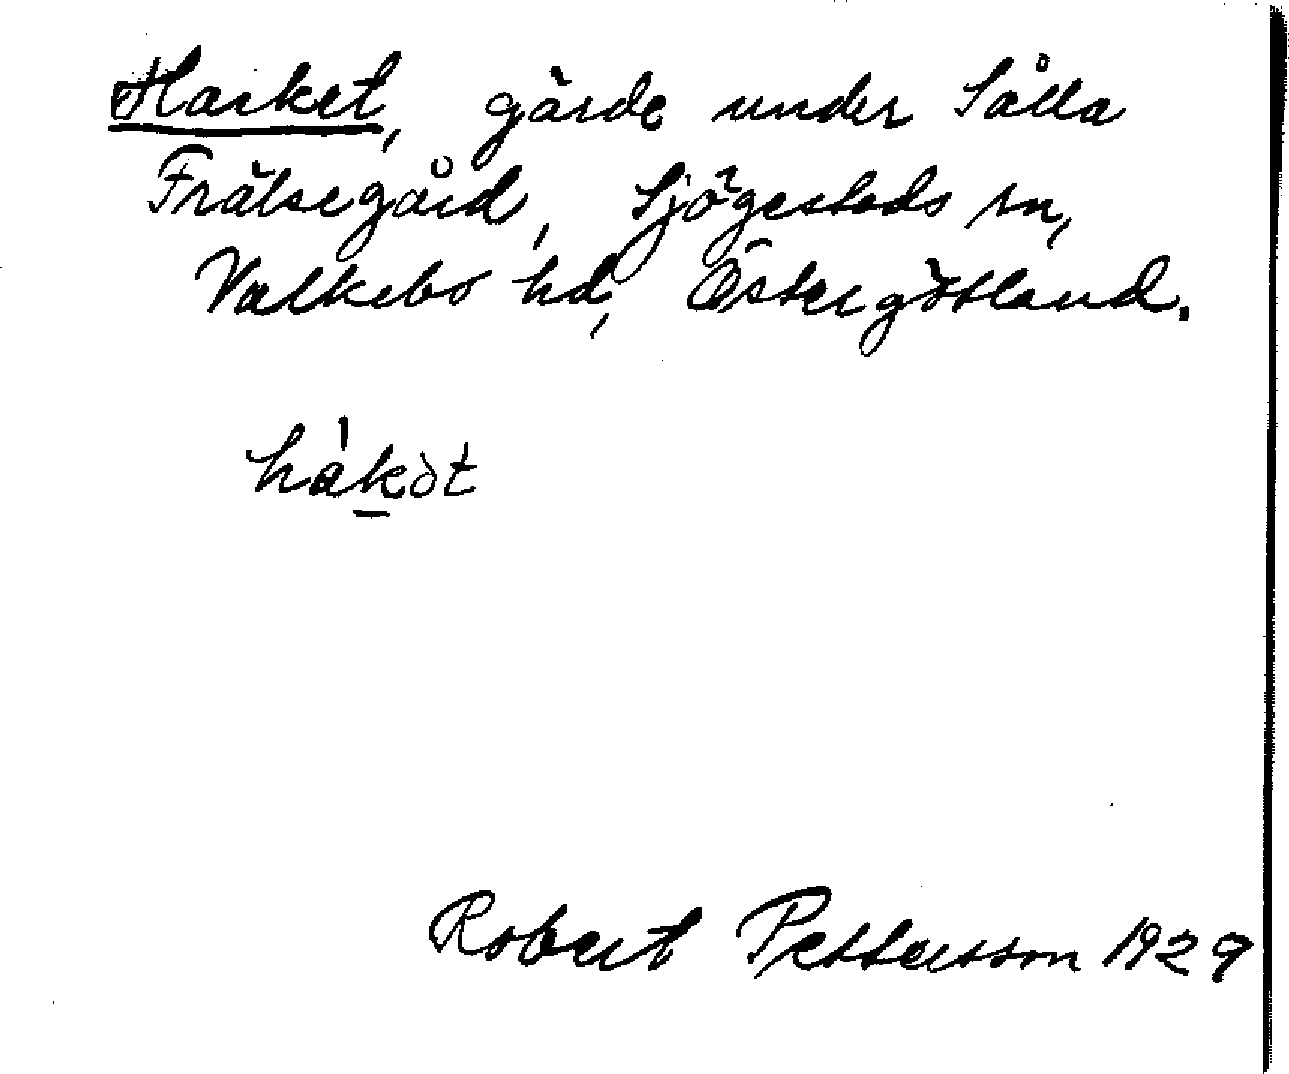 Harket, gärde under Sålla
Frälsegård, Sjögestads sn,
Valkebo hd, Östergötland.
hàkət
Robert Pettersson 1929